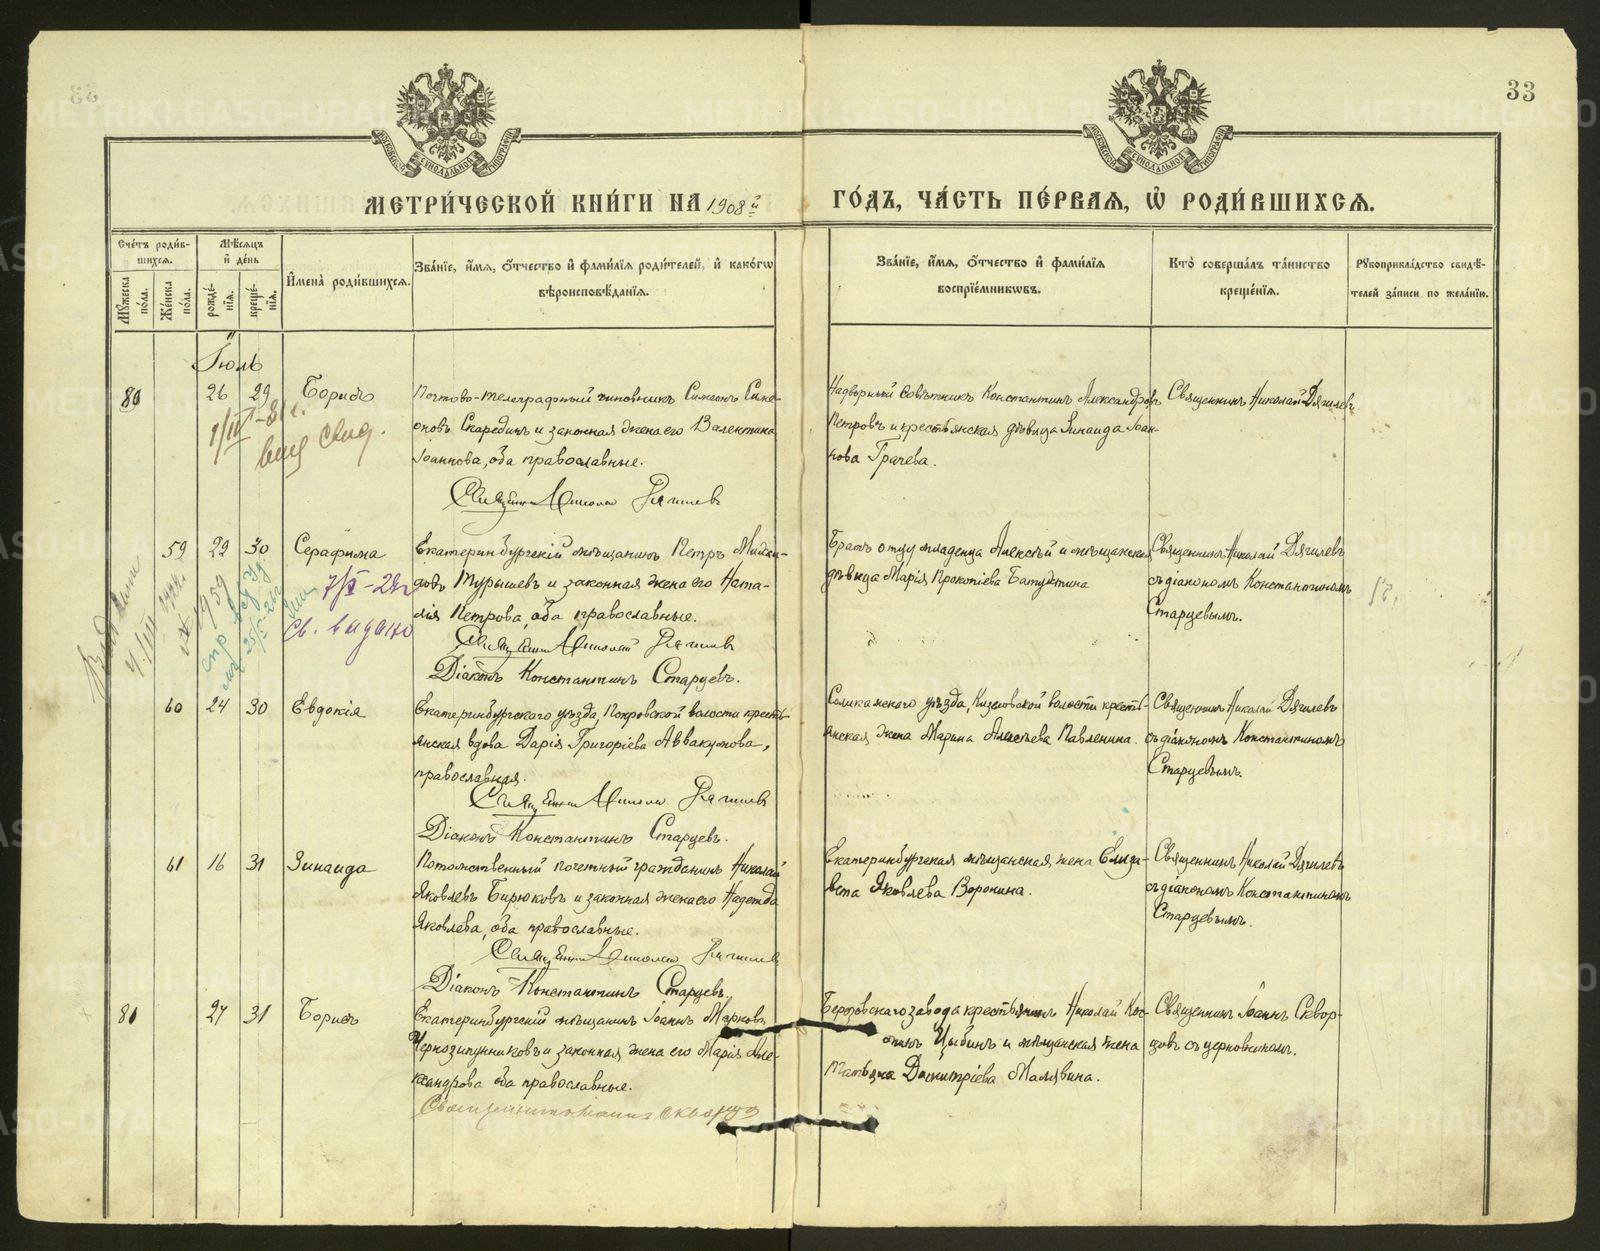 33
МОСКОВСКОЙ СѴНОДАЛЬНОЙ ТИПОГРАФІИ
МОСКОВСКОЙ СѴНОДАЛЬНОЙ ТИПОГРАФІИ
МЕТРИ́ЧЕСКОЙ КНИ́ГИ НА 1908й ГО́ДЪ, ЧА́СТЬ ПЕ́РВАѦ, Ѡ҆ РОДИ́ВШИХСѦ.
Сче́тъ роди́в-
шихсѧ.
Мꙋ́жеска по́ла.
Же́нска по́ла.
Мѣ́сѧцъ и҆ де́нь
рожде́-нїѧ.
креще́-нїѧ.
И҆мена̀ роди́вшихсѧ.
Зва́нїе, и҆́мѧ, ѻ҆́тчество и҆ фами́лїѧ роди́телей, и҆ како́гѡ
вѣроисповѣ́данїѧ.
Зва́нїе, и҆́мѧ, ѻ҆́тчество и҆ фами́лїѧ
воспрїе́мникѡвъ.
Кто̀ соверша́лъ та́инство
креще́нїѧ.
Рꙋкоприкла́дство свидѣ́-
телей за́писи по жела́нїю.
Іюль
80 26 29 Борисъ
Почтово-телеграфный чиновникъ Симеонъ Симе-
оновъ Скарединъ и законная жена его Валентина
Іоаннова, оба православные.
Священникъ Николай Дягилевъ
Надворный Совѣтникъ Константинъ Александровъ
Петровъ и крестьянская дѣвица Зинаида Іоан-
нова Грачева.
Священникъ Николай Дягилевъ
59 29 30 Серафима
7/X-22г
св. выдано
Екатеринбургскій мѣщанинъ Петръ
Турышевъ и законная жена его Ната-
лія Петрова, оба православные.
Священникъ Николай Дягилевъ
Діаконъ Константинъ Старцевъ.
Братъ отцу младенца Алексѣй и мѣщанская
дѣвица Марія Прокопіева
Священникъ Николай Дягилевъ
съ діакономъ Константиномъ
Старцевымъ.
60 24 30 Евдокія
Екатеринбургскаго уѣзда, Покровской волости кресть-
янская вдова Дарія Григоріева Аввакумова,
православная.
Священникъ Николай Дягилевъ
Діаконъ Константинъ Старцевъ.
Соликамскаго уѣзда, Кизеловской волости кресть-
янская жена Марина Алексѣева Павленина.
Священникъ Николай Дягилевъ
съ діакономъ Константиномъ
Старцевымъ.
61 16 31 Зинаида
Потомственный почетный гражданинъ Николай
Яковлевъ Бирюковъ и законная жена его Надежда
Яковлева, оба православные.
Священникъ Николай Дягилевъ
Діаконъ Константинъ Старцевъ.
Екатеринбургская мѣщанская жена Елиза-
вета Яковлева Воронина.
Священникъ Николай Дягилевъ
съ діакономъ Константиномъ
Старцевымъ.
81 27 31 Борисъ
Екатеринбургскій мѣщанинъ Іоаннъ Марковъ
Чернозипунниковъ и законная жена его Марія Але-
ксандрова оба православные.
Священникъ Іоаннъ Скворцовъ
Березовскаго завода крестьянинъ Николай Кос-
минъ Цыбинъ и мѣщанская жена
Татьяна Димитріева Малявина.
Священникъ Іоаннъ Сквор-
цовъ съ церковникомъ.
METRIKI.GASO-URAL.RU